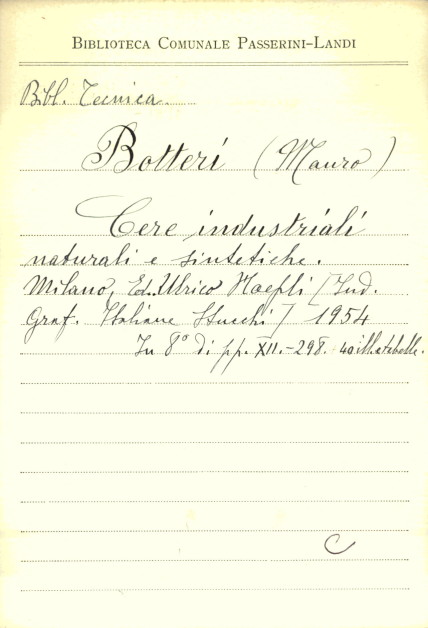 BIBLIOTECA COMUNALE PASSERINI-LANDI
Bibl. Tecnica.
Botteri (Mauro)
Cere industriali
naturali e sintetiche.
Milano, Ed. Ulrico Hoepli (Ind.
Graf. Italiane Stucchi) 1954
In 8° di pp. XII.-298. 40 ill. e tabelle.
C